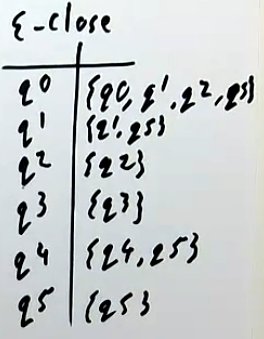 ε-close
q0 {q0, q1, q2, q5}
q1 {q1, q5}
q2 {q2}
q3 {q3}
q4 {q4, q5}
q5 {q5}